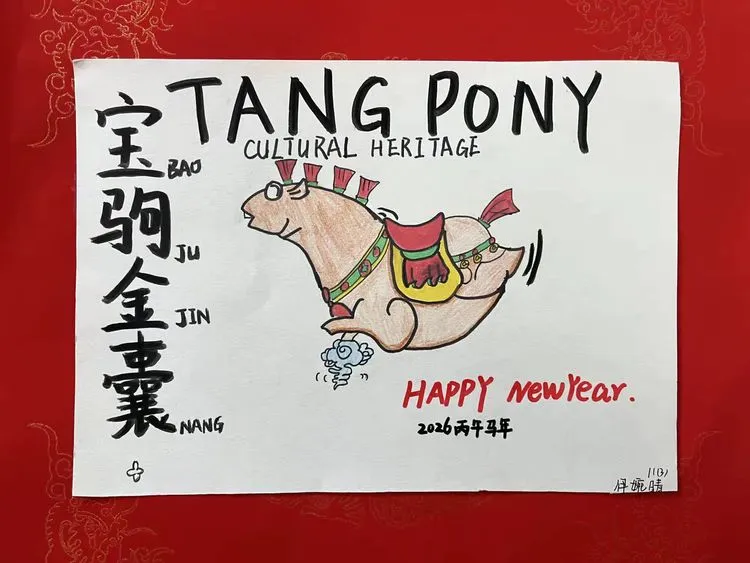 TANG PONY
CULTURAL HERITAGE
宝 BAO
驹 JU
金 JIN
囊 NANG
HAPPY NewYear.
2026丙午马年
11(3)